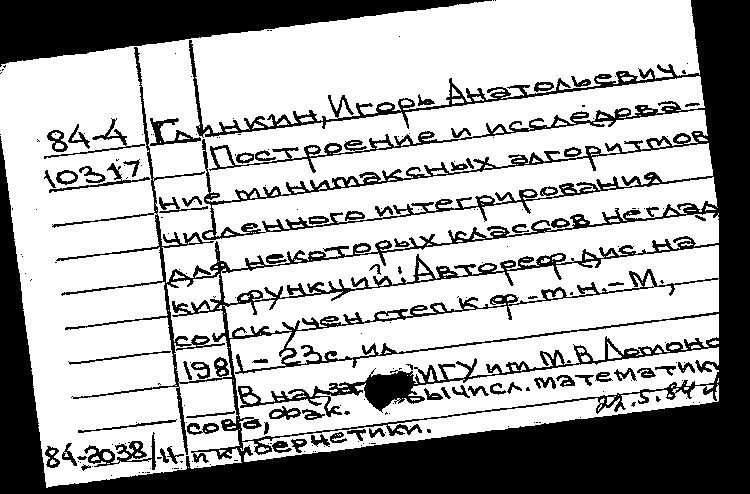 84-4 Глинкин, Игорь Анатольевич.
10317 Построение и исследова-
ние минимаксных алгоритмов
численного интегрирования
для некоторых классов неглад
ких функций: Автореф. дис. на
соиск. учен. степ. к. ф.-т. н. - М.,
1981 - 23с., ил
В надзаг МГУ им М.В Ломоно
сова, фак. вычисл. математики
22.5.84
84-2038/11 и кибернетики.